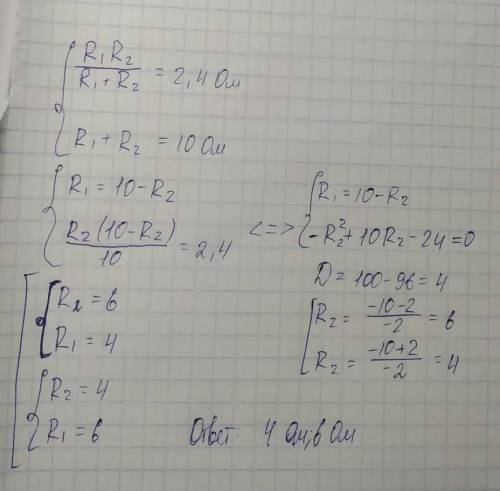 R₁R₂ / (R₁ + R₂) = 2,4 Ом
R₁ + R₂ = 10 Ом
R₁ = 10 - R₂
R₂(10 - R₂) / 10 = 2,4
<=>
R₁ = 10 - R₂
-R₂² + 10R₂ - 24 = 0
D = 100 - 96 = 4
R₂ = (-10 - 2) / -2 = 6
R₂ = (-10 + 2) / -2 = 4
R₂ = 6
R₁ = 4
R₂ = 4
R₁ = 6
Ответ: 4 Ом; 6 Ом